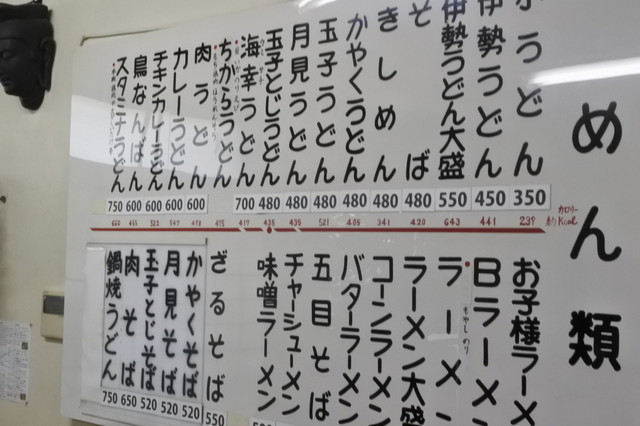 めん類
うどん
350
239
カロリー
約Kcal
伊勢うどん
450
441
伊勢うどん大盛
550
643
そば
480
420
きしめん
480
341
かやくうどん
480
405
玉子うどん
480
521
月見うどん
480
439
玉子とじうどん
480
435
海幸うどん
700
417
ちからうどん
475
肉うどん
600
498
カレーうどん
600
547
チキンカレーうどん
600
522
鳥なんばん
600
455
スタミナうどん
750
660
お子様ラーメ
Bラーメン
ラーメン
もやし のり
ラーメン大盛
コーンラーメン
バターラーメン
五目そば
チャーシューメン
味噌ラーメン
ざるそば
550
かやくそば
520
月見そば
520
玉子とじそば
520
肉そば
650
鍋焼うどん
750